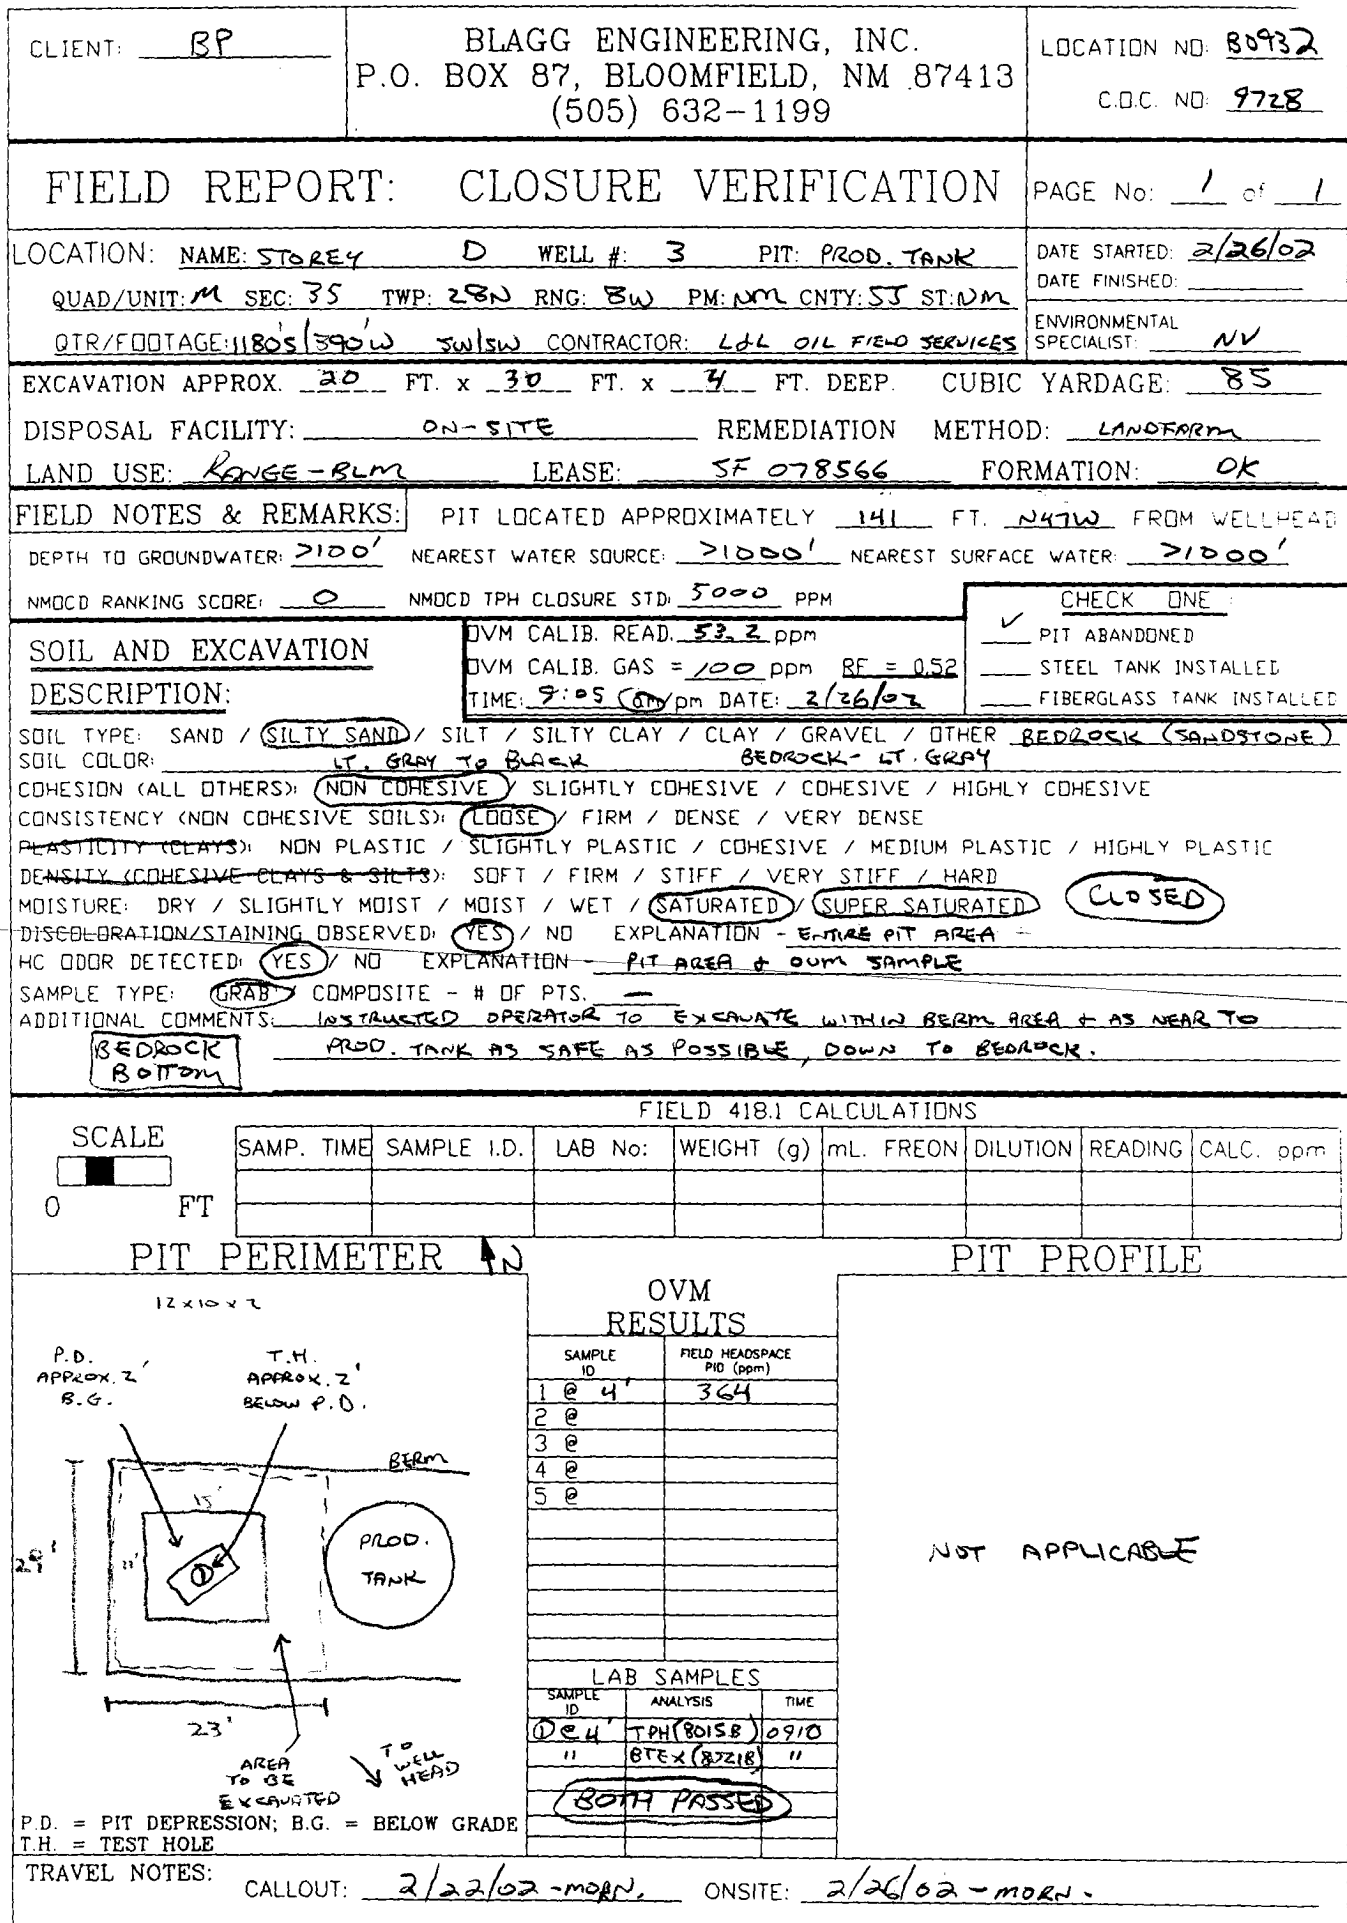 CLIENT: BP
BLAGG ENGINEERING, INC.
P.O. BOX 87, BLOOMFIELD, NM 87413
(505) 632-1199
LOCATION NO: B0932
C.O.C. NO: 9728
FIELD REPORT: CLOSURE VERIFICATION
PAGE No: 1 of 1
LOCATION: NAME: STOREY D WELL #: 3 PIT: PROD. TANK
QUAD/UNIT: M SEC: 35 TWP: 28N RNG: 8W PM: NM CNTY: SJ ST: NM
QTR/FOOTAGE: 1180'S/390'W SW/SW CONTRACTOR: L&L OIL FIELD SERVICES
DATE STARTED: 2/26/02
DATE FINISHED:
ENVIRONMENTAL
SPECIALIST: NV
EXCAVATION APPROX. 20 FT. x 30 FT. x 4 FT. DEEP. CUBIC YARDAGE: 85
DISPOSAL FACILITY: ON-SITE REMEDIATION METHOD: LANDFARM
LAND USE: RANGE-BLM LEASE: SF 078566 FORMATION: DK
FIELD NOTES & REMARKS: PIT LOCATED APPROXIMATELY 141 FT. N47W FROM WELLHEAD
DEPTH TO GROUNDWATER: >100' NEAREST WATER SOURCE: >1000' NEAREST SURFACE WATER: >1000'
NMOCD RANKING SCORE: 0 NMOCD TPH CLOSURE STD: 5000 PPM
CHECK ONE :
✓ PIT ABANDONED
STEEL TANK INSTALLED
FIBERGLASS TANK INSTALLED
SOIL AND EXCAVATION
DESCRIPTION:
OVM CALIB. READ. 53.2 ppm
OVM CALIB. GAS = 100 ppm RF = 0.52
TIME: 9:05 am/pm DATE: 2/26/02
SOIL TYPE: SAND / SILTY SAND / SILT / SILTY CLAY / CLAY / GRAVEL / OTHER BEDROCK (SANDSTONE)
SOIL COLOR: LT. GRAY TO BLACK BEDROCK - LT. GRAY
COHESION (ALL OTHERS): NON COHESIVE / SLIGHTLY COHESIVE / COHESIVE / HIGHLY COHESIVE
CONSISTENCY (NON COHESIVE SOILS): LOOSE / FIRM / DENSE / VERY DENSE
PLASTICITY (CLAYS): NON PLASTIC / SLIGHTLY PLASTIC / COHESIVE / MEDIUM PLASTIC / HIGHLY PLASTIC
DENSITY (COHESIVE CLAYS & SILTS): SOFT / FIRM / STIFF / VERY STIFF / HARD
MOISTURE: DRY / SLIGHTLY MOIST / MOIST / WET / SATURATED / SUPER SATURATED CLOSED
DISCOLORATION/STAINING OBSERVED: YES / NO EXPLANATION - ENTIRE PIT AREA
HC ODOR DETECTED: YES / NO EXPLANATION - PIT AREA & OVM SAMPLE
SAMPLE TYPE: GRAB / COMPOSITE - # OF PTS. —
ADDITIONAL COMMENTS: INSTRUCTED OPERATOR TO EXCAVATE WITHIN BERM AREA & AS NEAR TO
PROD. TANK AS SAFE AS POSSIBLE, DOWN TO BEDROCK.
BEDROCK
BOTTOM
FIELD 418.1 CALCULATIONS
SCALE
0 FT
SAMP. TIME SAMPLE I.D. LAB No: WEIGHT (g) mL. FREON DILUTION READING CALC. ppm
PIT PERIMETER N
PIT PROFILE
12 x 10 x 2
P.D.
APPROX. 2'
B.G.
T.H.
APPROX. 2'
BELOW P.D.
BERM
15'
11'
1
PROD.
TANK
23'
AREA
TO BE
EXCAVATED
TO
WELL
HEAD
P.D. = PIT DEPRESSION; B.G. = BELOW GRADE
T.H. = TEST HOLE
OVM
RESULTS
SAMPLE ID FIELD HEADSPACE PID (ppm)
1 @ 4' 364
2 @
3 @
4 @
5 @
LAB SAMPLES
SAMPLE ID ANALYSIS TIME
1 @ 4' TPH (8015B) 0910
" BTEX (8021B) "
BOTH PASSED
NOT APPLICABLE
TRAVEL NOTES: CALLOUT: 2/22/02 - MORN. ONSITE: 2/26/02 - MORN.